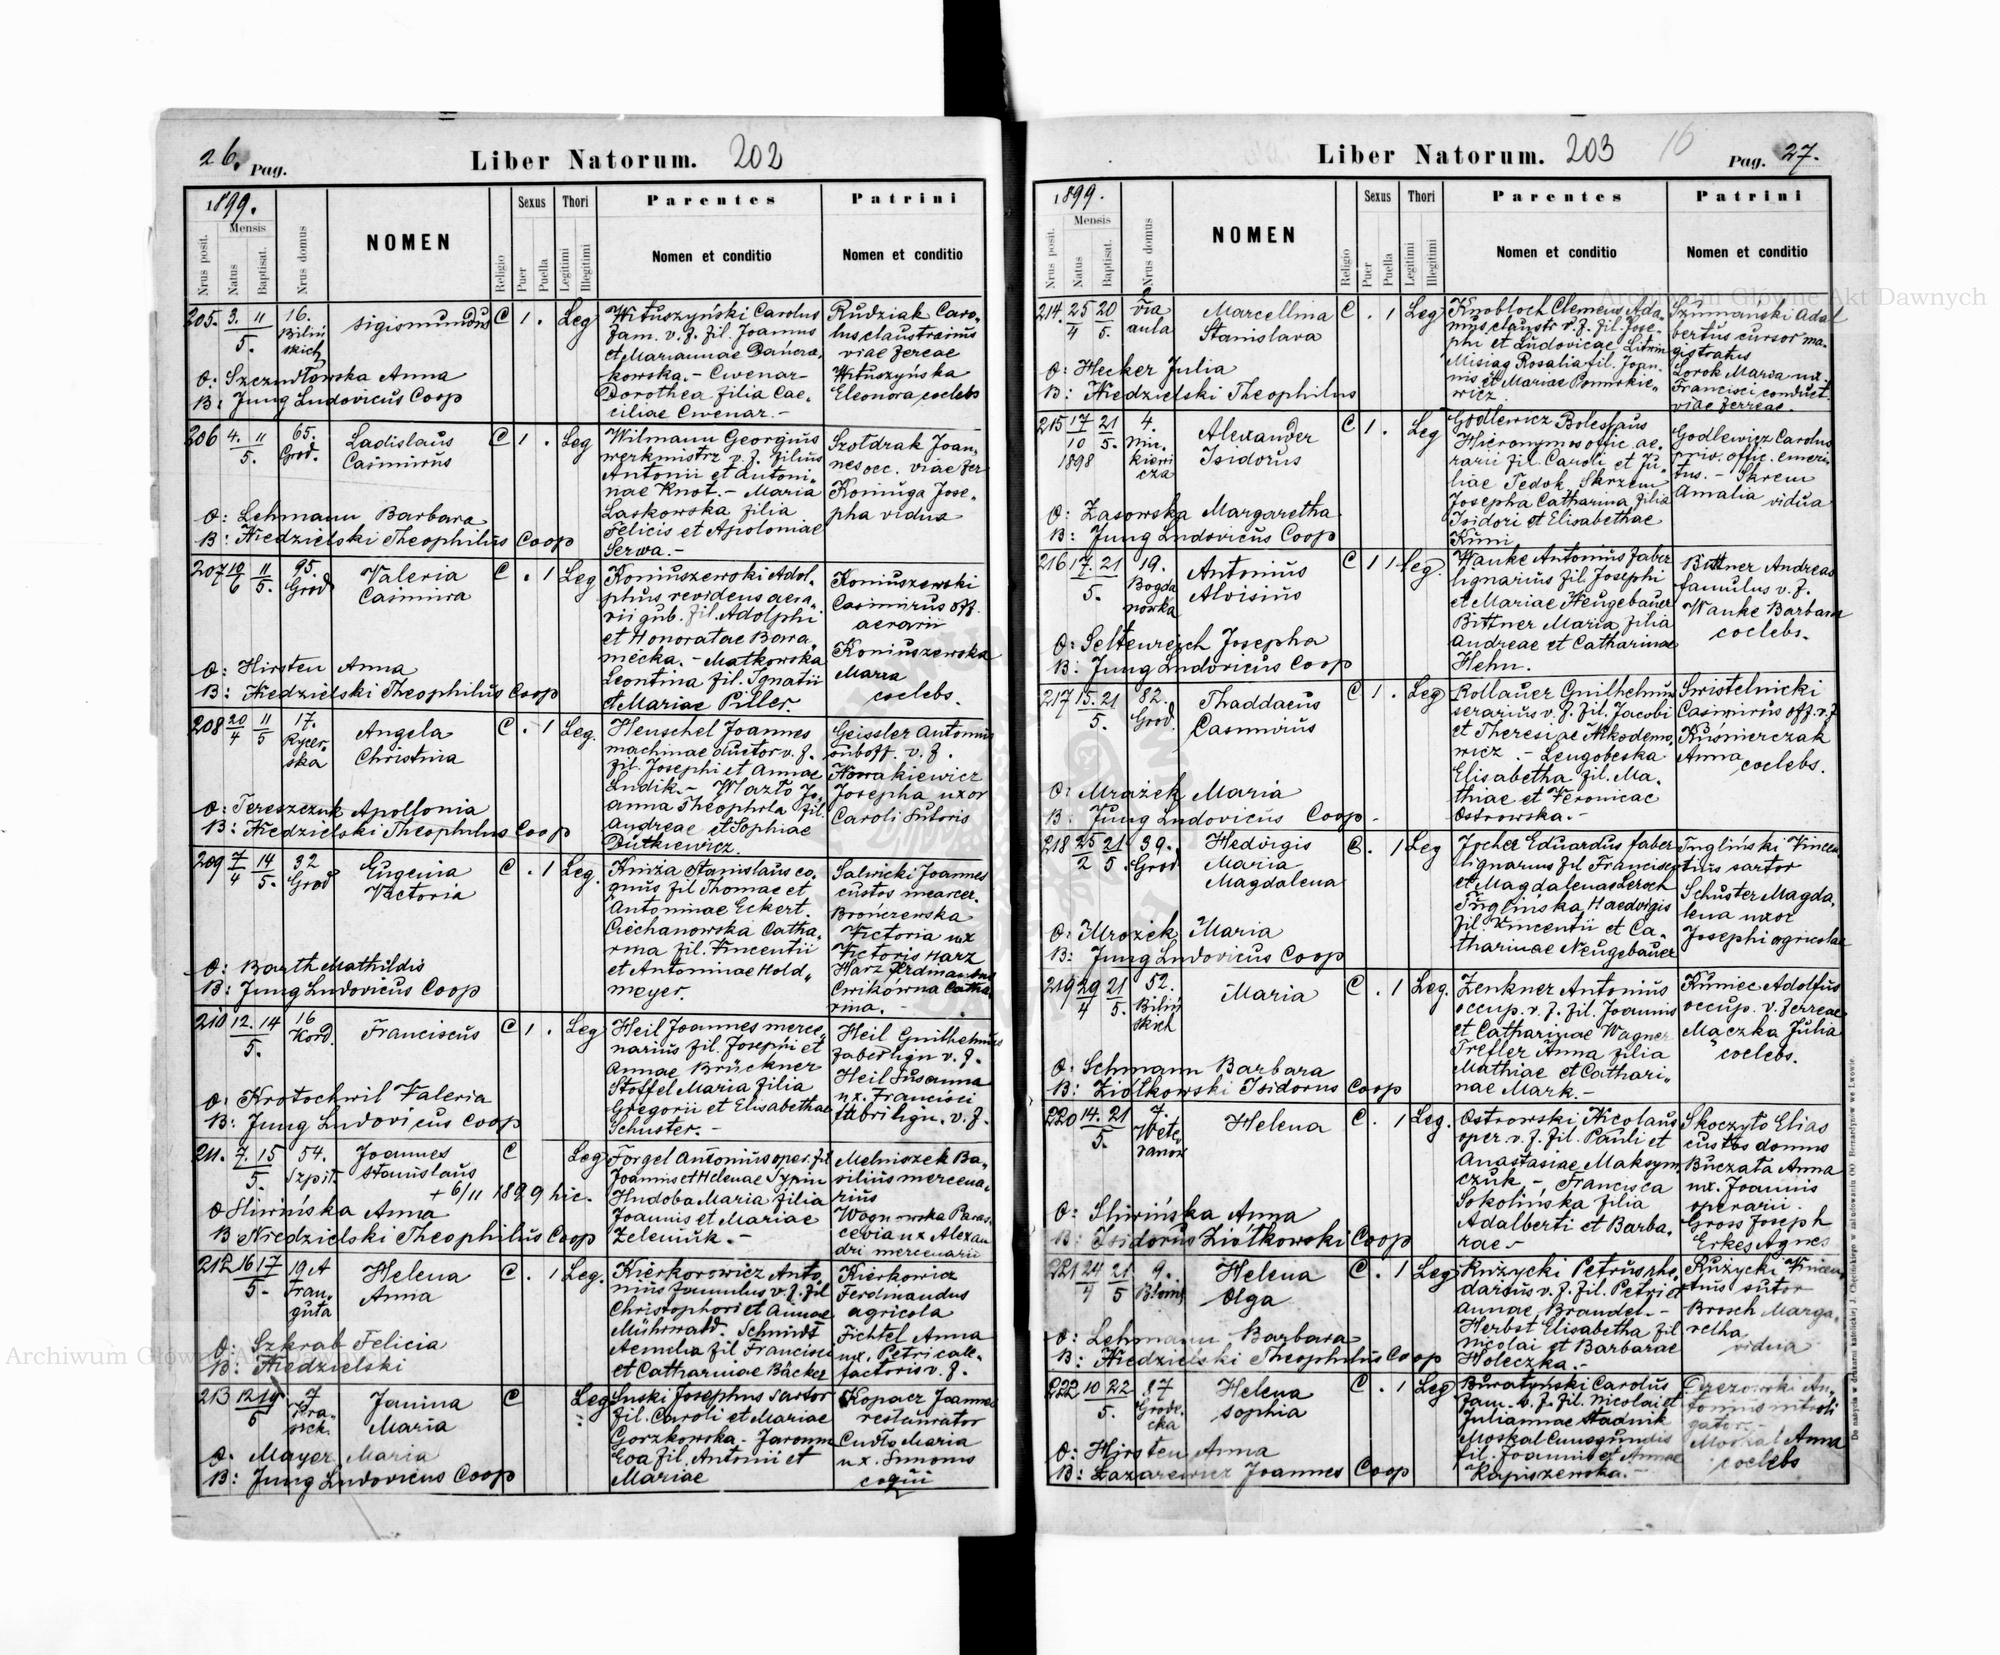 26. Pag. Liber Natorum. 202
1899.
Mensis
Nrus posit.
Natus
Baptisat.
Nrus domus
NOMEN
Religio
Sexus
Puer
Puella
Thori
Legitimi
Illegitimi
Parentes
Nomen et conditio
Patrini
Nomen et conditio
205. 3. 11 16. Sigismundus C 1 . Leg
5. Biliń
skich
Wituszyński Carolus
fam. v. f. fil. Joannis
et Mariannae
kowska. - Cwenar
Dorothea filia Cae-
ciliae Cwenar. -
Rudziak Caro-
lus claustrarius
viae ferreae
Wituszyńska
Eleonora coelebs
O: Szczudłowska Anna
B: Jung Ludovicus Coop
206 4. 11 65. Ladislaus C 1 . Leg
5. Grod. Casimirus
Wilmann Georgius
werkmistrz v. f. filius
Antonii et Antoni-
nae Knot. - Maria
Laskowska filia
Felicis et Apoloniae
Serwa. -
Szotdrak Joan-
nes occ. viae fer
Koniuga Jose-
pha vidua
O: Lehmann Barbara
B: Niedzielski Theophilus Coop
207 10 11 95. Valeria C . 1 Leg
6 5. Grod Casimira
Koniuszewski Adol-
phus revidens aera-
rii gub. fil. Adolphi
et Honoratae Bara
niecka. - Matkowska
Leontina fil. Ignatii
et Mariae Piller.
Koniuszewski
Casimirus off.
aerarii
Koniuszewska
Maria
coelebs.
O: Hirsten Anna
B: Niedzielski Theophilus Coop
208 20 11 17. Angela C . 1 Leg.
4 5 Rycer- Christina
ska
Heuschel Joannes
machinae ductor v. f.
fil. Josephi et Annae
Ludik. - Wazło Jo-
anna Theophila fil.
Andreae et Sophiae
Dutkiewicz.
Geissler Antonius
suboff. v. f.
Nowakiewicz
Josepha uxor
Caroli sutoris
O: Tereszczuk Apollonia
B: Niedzielski Theophilus Coop
209 7 14 32 Eugenia C . 1 Leg.
4 5. Grod Victoria
Kniża Stanislaus co-
quus fil Thomae et
Antoninae Eckert.
Ciechanowska Catha-
rina fil. Vincentii
et Antoninae Hold-
meyer.
Salwicki Joannes
custos mearcer.
Brończewska
Victoria ux
Victoris Harz
Harz Ferdinandus
Cwikówna Catha-
rina. -
O: Barth Mathildis
B: Jung Ludovicus Coop
210 12. 14 16 Franciscus C 1 . Leg
5. Kord.
Heil Joannes merce-
narius fil. Josephi et
Annae Brückner
Stoffel Maria filia
Gregorii et Elisabethae
Schuster. -
Heil Guilhelmus
faber lign v. f.
Heil Susanna
ux. Francisci
fabri lign. v. f.
O: Krotochwil Valeria
B: Jung Ludovicus Coop
211. 7. 15 54. Joannes C Leg
5. Szpit. Stanislaus
+ 6/11 1899 hic.
Forgel Antonius oper. fil
Joannis et Helenae Sypin
Hudoba Maria filia
Joannis et Mariae
Zeleniuk. -
Melniczek Ba-
silius mercena-
rius
Paras-
cevia ux Alexan
dri mercenarii
O Sliwińska Anna
B Niedzielski Theophilus Coop
212 16 17 19A Helena C . 1 Leg.
5. Fran- Anna
guta
Kierkorowicz Anto-
nius famulus v. f. fil
Christophori et Annae
Mührwald. Schmidt
Aemelia fil Francisci
et Catharinae Bäcker
Kierkowicz
Ferdinandus
agricola
Fichtel Anna
ux. Petri cale-
factoris v. f.
O: Szkrab Felicia
B: Niedzielski
213 12 19 7 Janina C Leg
5 Kra- Maria
sich.
Luski Josephus sartor
fil. Caroli et Mariae
Gorzkowska - Jaronim
Eva fil. Antonii et
Mariae
Kopacz Joannes
restaurator
Cudło Maria
ux. Simonis
coqui
O. Mayer Maria
B: Jung Ludovicus Coop
Liber Natorum. 203 16 Pag. 27.
1899.
Mensis
Nrus posit.
Natus
Baptisat.
Nrus domus
NOMEN
Religio
Sexus
Puer
Puella
Thori
Legitimi
Illegitimi
Parentes
Nomen et conditio
Patrini
Nomen et conditio
214. 25 20 via Marcellina C . 1 Leg
4 5. aula Stanislava
Knobloch Clemens Ada-
mus claustr v. f. fil. Jose-
phi et Ludovicae Litwin
Misiąg Rosalia fil. Joan-
nis et Mariae Ponurkie-
wicz
Szumański Adal
bertus cursor ma-
gistratus
Lorok Maria ux.
Francisci conduct.
viae ferreae.
O: Hecker Julia
B: Niedzielski Theophilus
215 17 21 4. Alexander C 1 . Leg
10 5. Mic- Isidorus
1898 kiewi
cza
Godlewicz Boleslaus
Hieronymos offic. ae-
rarii fil. Caroli et Ju-
liae Tedok, Skrzem
Josepha Catharina filia
Isidori et Elisabethae
Kuni
Godlewicz Carolus
priv. offic. emeri-
tus. - Skrem
Amalia vidua
O: Zasowska Margaretha
B: Jung Ludovicus Coop
216 17. 21 19. Antonius C 1 1 Leg.
5. Bogda Aloisius
nówka
Wanke Antonius faber
lignarius fil Josephi
et Mariae Neugebauer
Bittner Maria filia
Andreae et Catharinae
Hehn.
Bittner Andreas
famulus v. f.
Wanke Barbara
coelebs.
O: Seltenreich Josepha
B: Jung Ludovicus Coop
217 15. 21 82. Thaddaeus C 1 . Leg
5. Grod. Casimirus
Kollauer Guilhelmus
serarius v. f. fil. Jacobi
et Theresiae Nikodemo-
wicz - Leugobeska
Elisabetha fil. Ma-
thiae et Veronicae
Ostrowska. -
Swistelnicki
Casimirus off. v. f.
Kusnierczak
Anna
coelebs.
O: Mrażek Maria
B: Jung Ludovicus Coop -
218 25 21 39. Hedvigis C . 1 Leg
2 5 Grod Maria
Magdalena
Jocher Eduardus faber
lignarius fil Francisci
et Magdalenae Leroch
Tuglińska Haedvigis
fil. Vincentii et Ca-
tharinae Neugebauer
Tugliński Vincen-
tius sartor
Schuster Magda-
lena uxor
Josephi agricolae
O: Mrożek Maria
B: Jung Ludovicus Coop
219 29 21 52. Maria C . 1 Leg.
4 5. Biliń
skich
Zenkner Antonius
occup. v. f. fil. Joannis
et Catharinae Wagner
Trefler Anna filia
Mathiae et Cathari-
nae Mark. -
Kuniec Adolfus
occup. v. ferreae
Mączka Julia
coelebs.
O: Schmann Barbara
B: Ziółkowski Isidorus Coop
220 14. 21 7. Helena C . 1 Leg.
5. Wete
ranów
Ostrowski Nicolaus
oper. v. f. fil. Pauli et
Anastasiae Maksym
czuk -, Francisca
Sokolińska filia
Adalberti et Barba-
rae -
Skoczyło Elias
custos domus
Buczata Anna
ux. Joannis
operarii.
Gross Joseph
Erkes Agnes
O: Sliwińska Anna
B: Isidorus Ziółkowski Coop
221 24 21 9. Helena C . 1 Leg
4 5 Błoni Olga
Rużycki Petrus rhe-
darius v. f. fil. Petri et
Annae Brandel. -
Herbst Elisabetha fil
Nicolai et Barbarae
Holeczka. -
Rużycki Vincen-
tius sutor
Brosch Marga-
retha
vidua
O: Lehmann Barbara
B: Niedzielski Theophilus Coop
222 10 22 87 Helena C . 1 Leg
5. Grode- Sophia
cka
Buratyński Carolus
fam. v. f. fil. Nicolai et
Juliannae Stadnik
Moskal Cunegundis
fil. Joannis et Annae
Rapiszewska. -
An-
tonius introli
gator. -
Moskal Anna
coelebs
O: Hirsten Anna
B: Łazarewicz Joannes Coop
Do nabycia w drukarni katolickiej J. Chęcińskiego w zabudowaniu OO. Bernardynów we Lwowie.
Archiwum Główne Akt Dawnych
Archiwum Główne Akt Dawnych